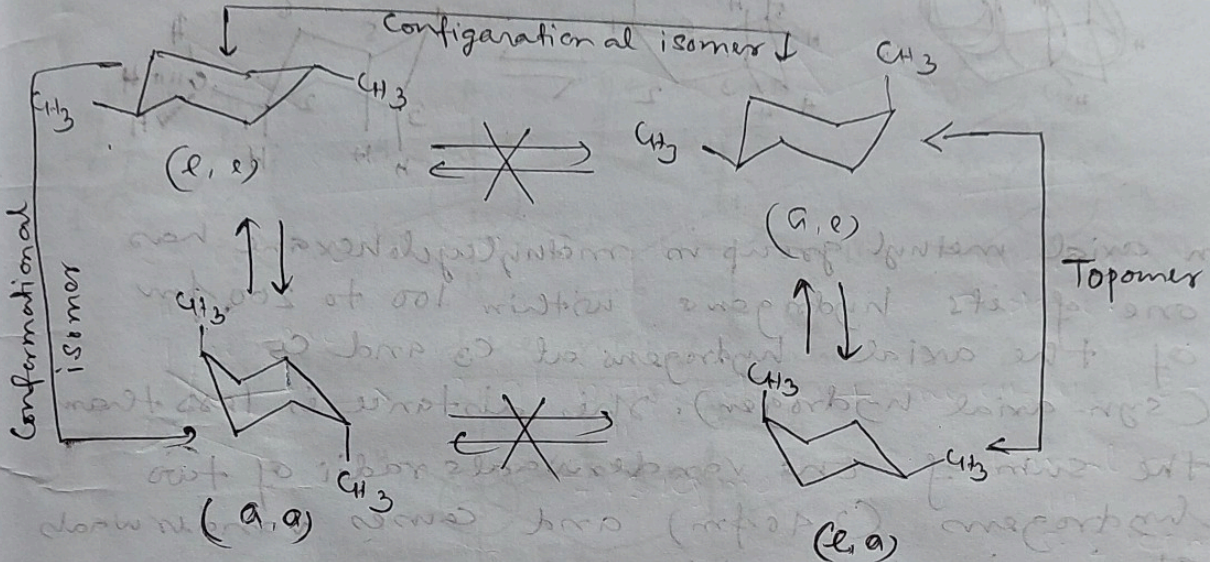 Configarational isomer
CH3
CH3
CH3
CH3
(e, e)
(a, e)
Conformational
isomer
Topomer
CH3
CH3
CH3
CH3
(a, a)
(e, a)